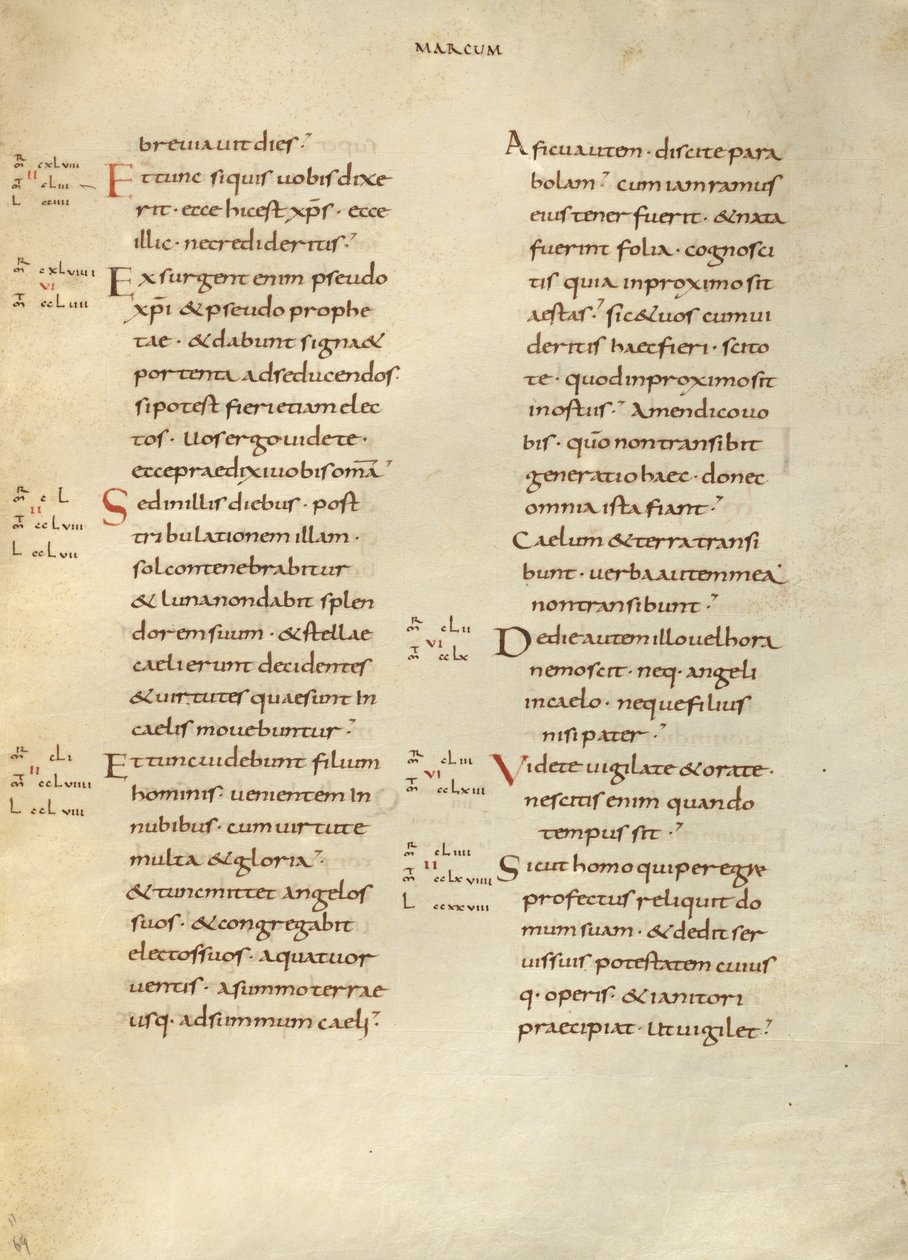 MARCUM
breviavit dies·
mr cxlviii
II
mt cliii
L cciiii
Et tunc siquis vobis dixe
rit· ecce hic est xp̄s· ecce
illic· ne credideritis·
mr cxlviiii
VI
mt ccliiii
Exsurgent enim pseudo
xp̄i & pseudo prophe
tae· & dabunt signa &
portenta ad seducendos·
si potest fieri etiam elec
tos· Vos ergo videte·
ecce praedixi vobis om̄a
mr cL
II
mt ccLviii
L ccLvii
Sed in illis diebus· post
tribulationem illam·
sol contenebrabitur
& luna non dabit splen
dorem suum· & stellae
caeli erunt decidentes
& virtutes quae sunt In
caelis movebuntur·
mr cLi
II
mt ccLviiii
L ccLviii
Et tunc videbunt filium
hominis· venientem In
nubibus· cum virtute
multa & gloria·
& tunc mittet Angelos
suos· & congregabit
electos suos· a quatuor
ventis· a summo terrae
usq· ad summum caeli·
A ficu autem· discite para
bolam· cum iam ramus
eius tener fuerit· & nata
fuerint folia· cognosci
tis quia in proximo sit
aestas· sic & vos cum vi
deritis haec fieri· scito
te· quod in proximo sit
in ostiis· Amen dico vo
bis· qūo non transibit
generatio haec· donec
omnia ista fiant·
Caelum & terra transi
bunt· verba autem mea
non transibunt·
mr cLii
VI
mt ccLx
De die autem illo vel hora
nemo scit· neq· angeli
in caelo· neque filius
nisi pater·
mr cLiii
VI
mt ccLxiii
Videte vigilate & orate·
nescitis enim quando
tempus sit·
mr cLiiii
II
mt ccLxviiii
L ccxxviii
Sicut homo qui peregre
profectus reliquit do
mum suam· & dedit ser
vis suis potestatem cuius
q· operis· & ianitori
praecipiat· Ut vigilet·
69